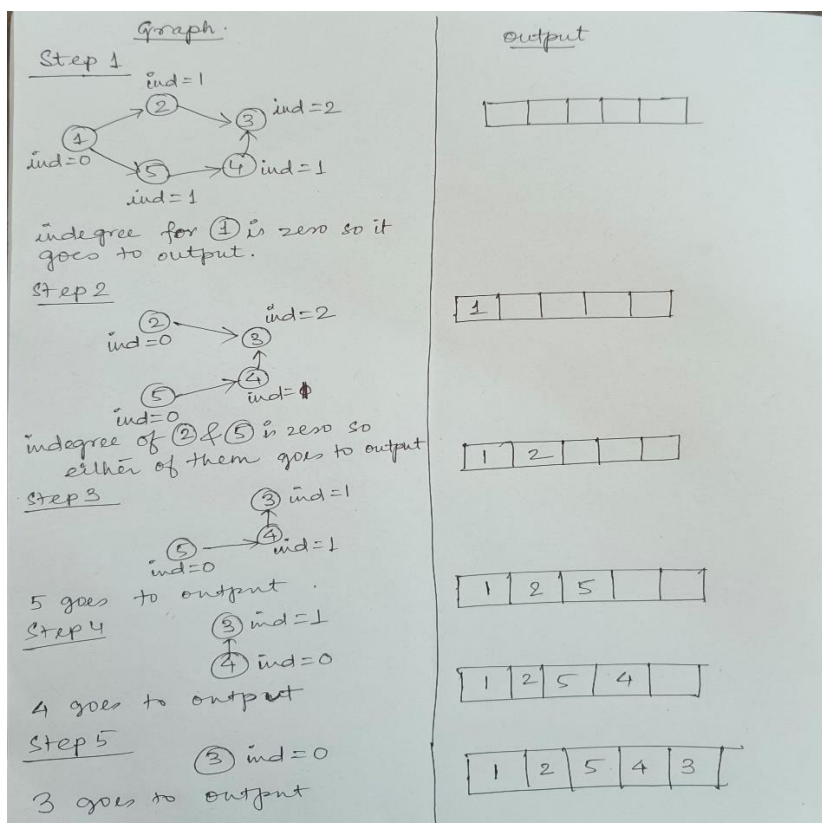 Graph.
output
Step 1
ind=1
2
3
ind=2
1
ind=0
5
4
ind=1
ind=1
indegree for 1 is zero so it
goes to output.
Step 2
1
2
ind=2
ind=0
3
5
4
ind=0
ind=1
indegree of 2 & 5 is zero so
either of them goes to output
1 2
Step 3
3 ind=1
5
4
ind=1
ind=0
5 goes to output.
1 2 5
Step 4
3 ind=1
4 ind=0
4 goes to output
1 2 5 4
Step 5
3 ind=0
3 goes to output
1 2 5 4 3